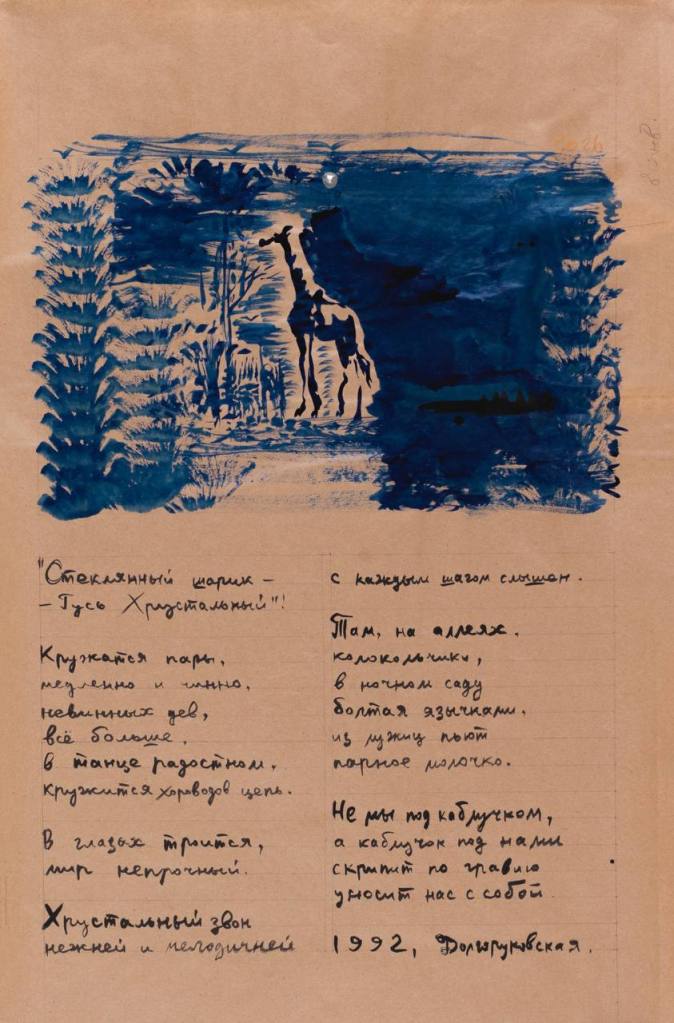 "Стеклянный шарик –
– Гусь Хрустальный"!
Кружатся пары,
медленно и чинно,
невинных дев,
всё больше,
в танце радостном,
кружится хороводов цепь.
В глазах троится,
мир непрочный.
Хрустальный звон
нежней и мелодичней
с каждым шагом слышен.
Там, на аллеях,
колокольчики,
в ночном саду
болтая язычками,
из лужиц пьют
парное молочко.
Не мы под каблучком,
а каблучок под нами
скрипит по гравию
уносит нас с собой.
1992, Долгоруковская.